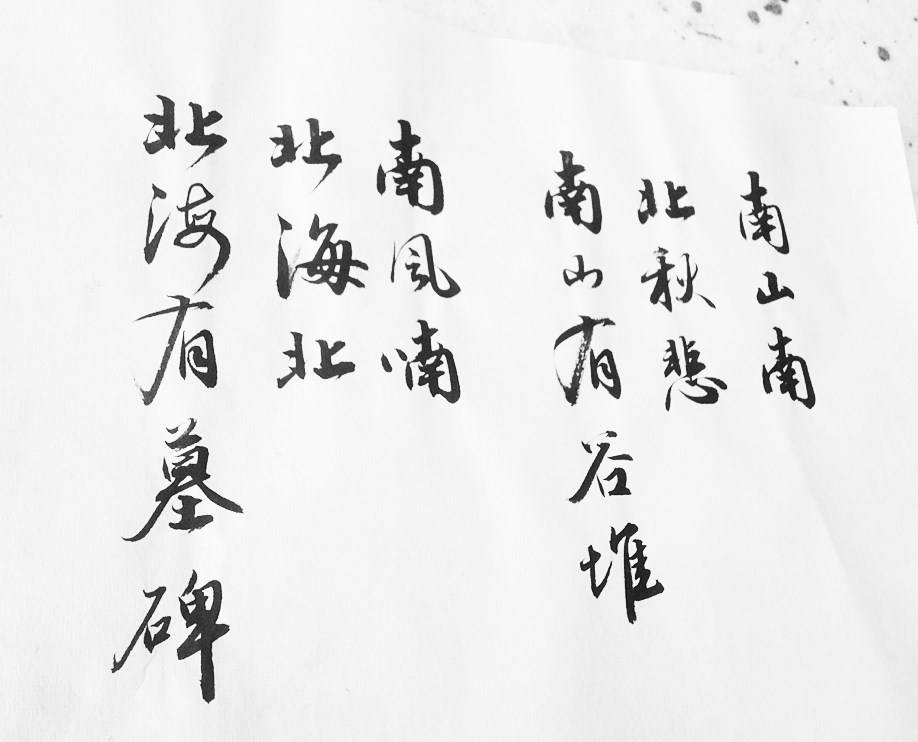 南山南
北秋悲
南山有谷堆
南风喃
北海北
北海有墓碑